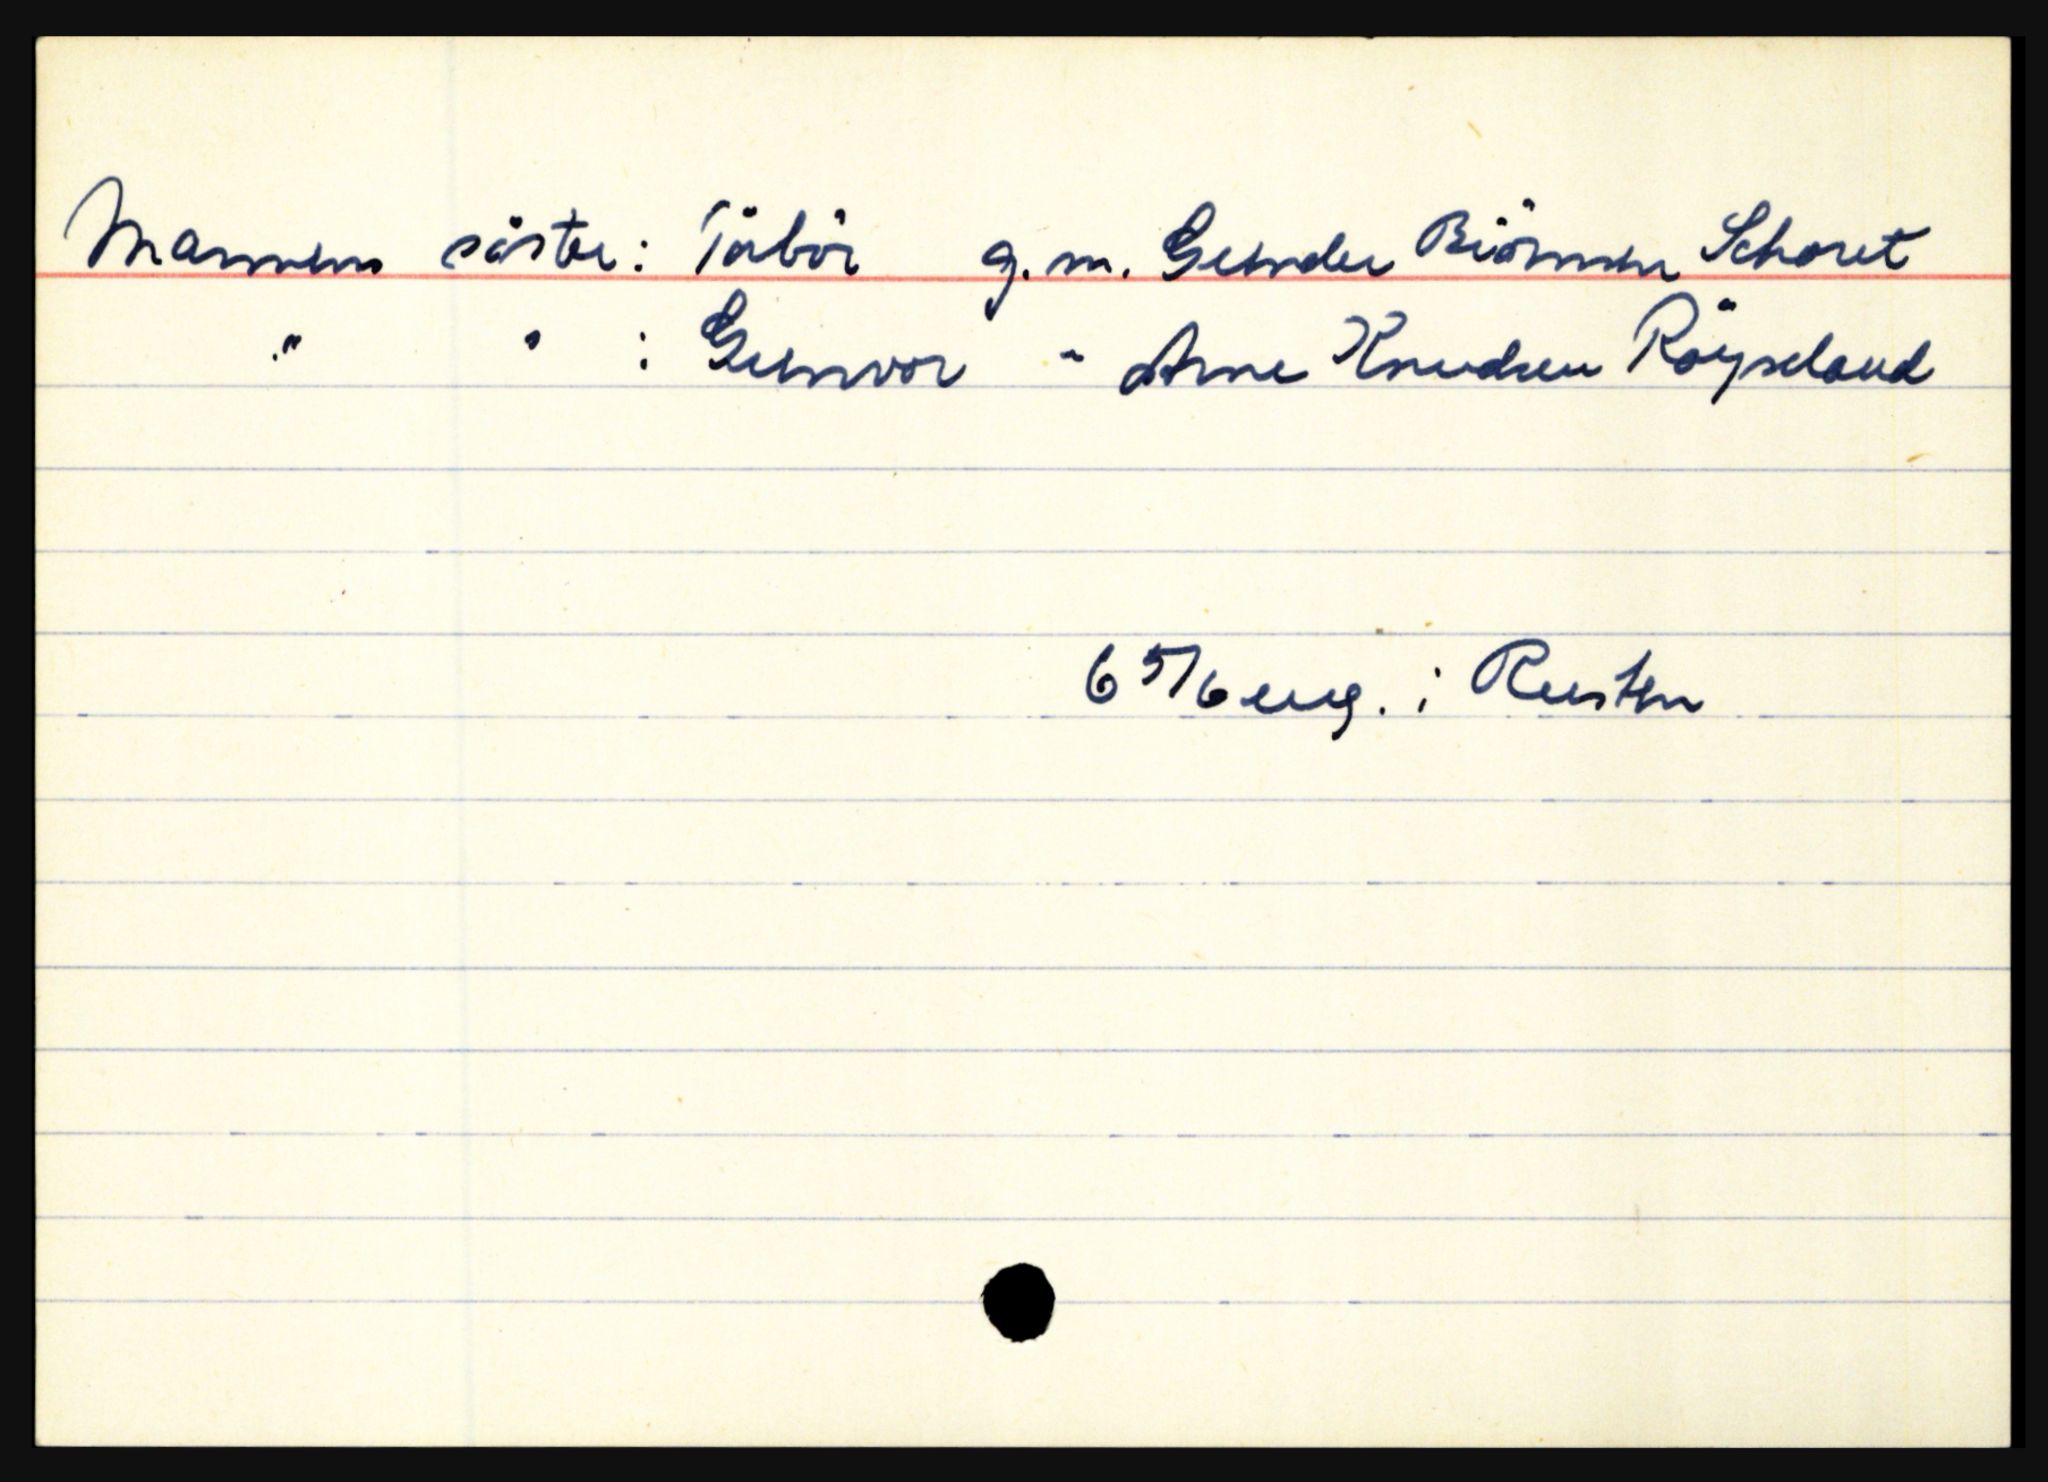 Mannens söster: Törbör g.m. Gunder Biörnsen Schoret
" " : Gunvor " Arne Knudsen Röyseland
6 5/6 eng. i Rusten